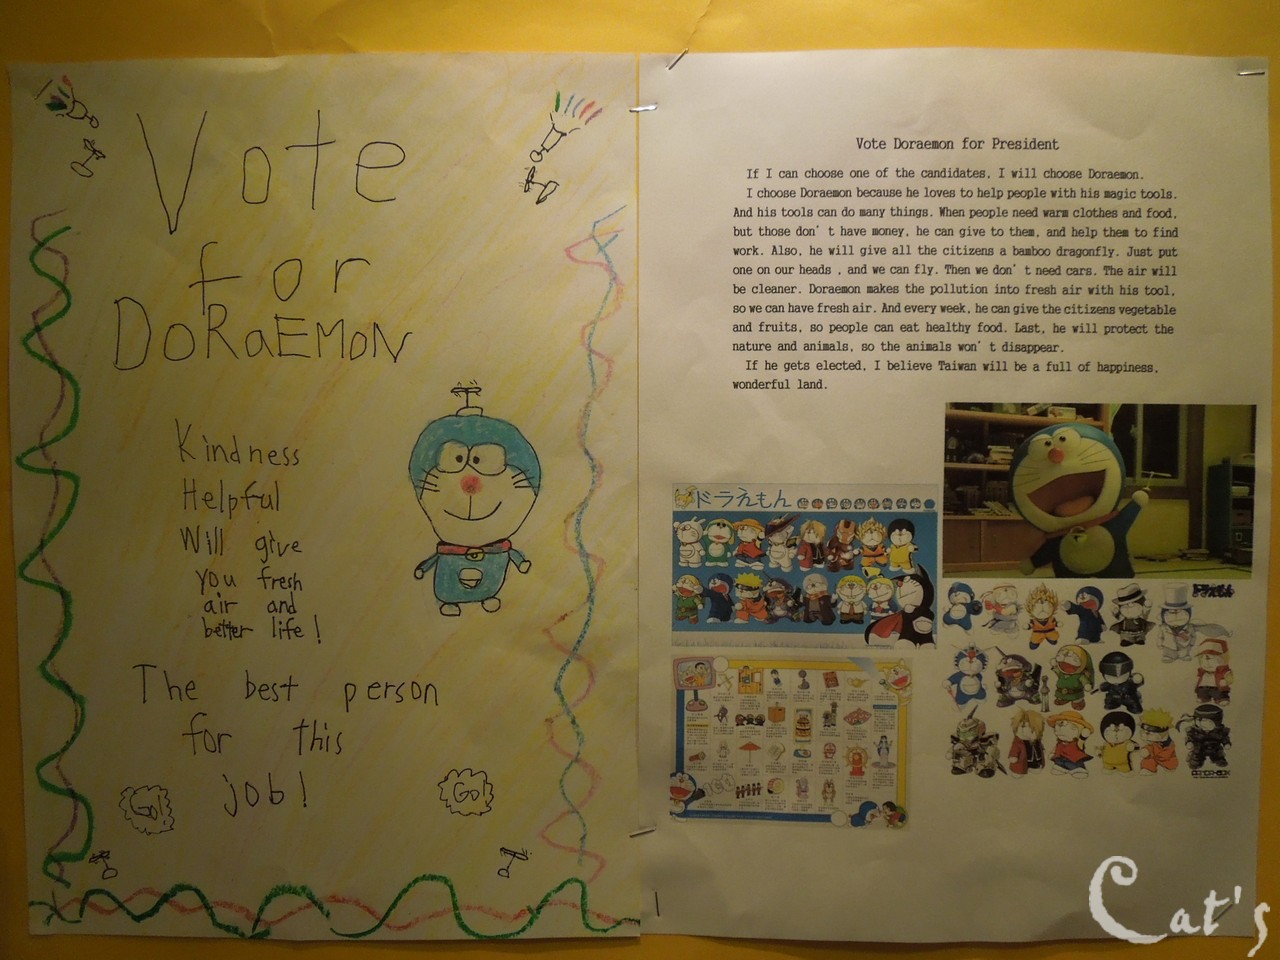 Vote
for
DoRaEMON
Kindness
Helpful
Will give
you fresh
air and
better life!
The best person
for this
job!
Go!
Go!
Vote Doraemon for President
If I can choose one of the candidates, I will choose Doraemon.
I choose Doraemon because he loves to help people with his magic tools.
And his tools can do many things. When people need warm clothes and food,
but those don't have money, he can give to them, and help them to find
work. Also, he will give all the citizens a bamboo dragonfly. Just put
one on our heads , and we can fly. Then we don't need cars. The air will
be cleaner. Doraemon makes the pollution into fresh air with his tool,
so we can have fresh air. And every week, he can give the citizens vegetable
and fruits, so people can eat healthy food. Last, he will protect the
nature and animals, so the animals won't disappear.
If he gets elected, I believe Taiwan will be a full of happiness,
wonderful land.
ドラえもん
Cat's